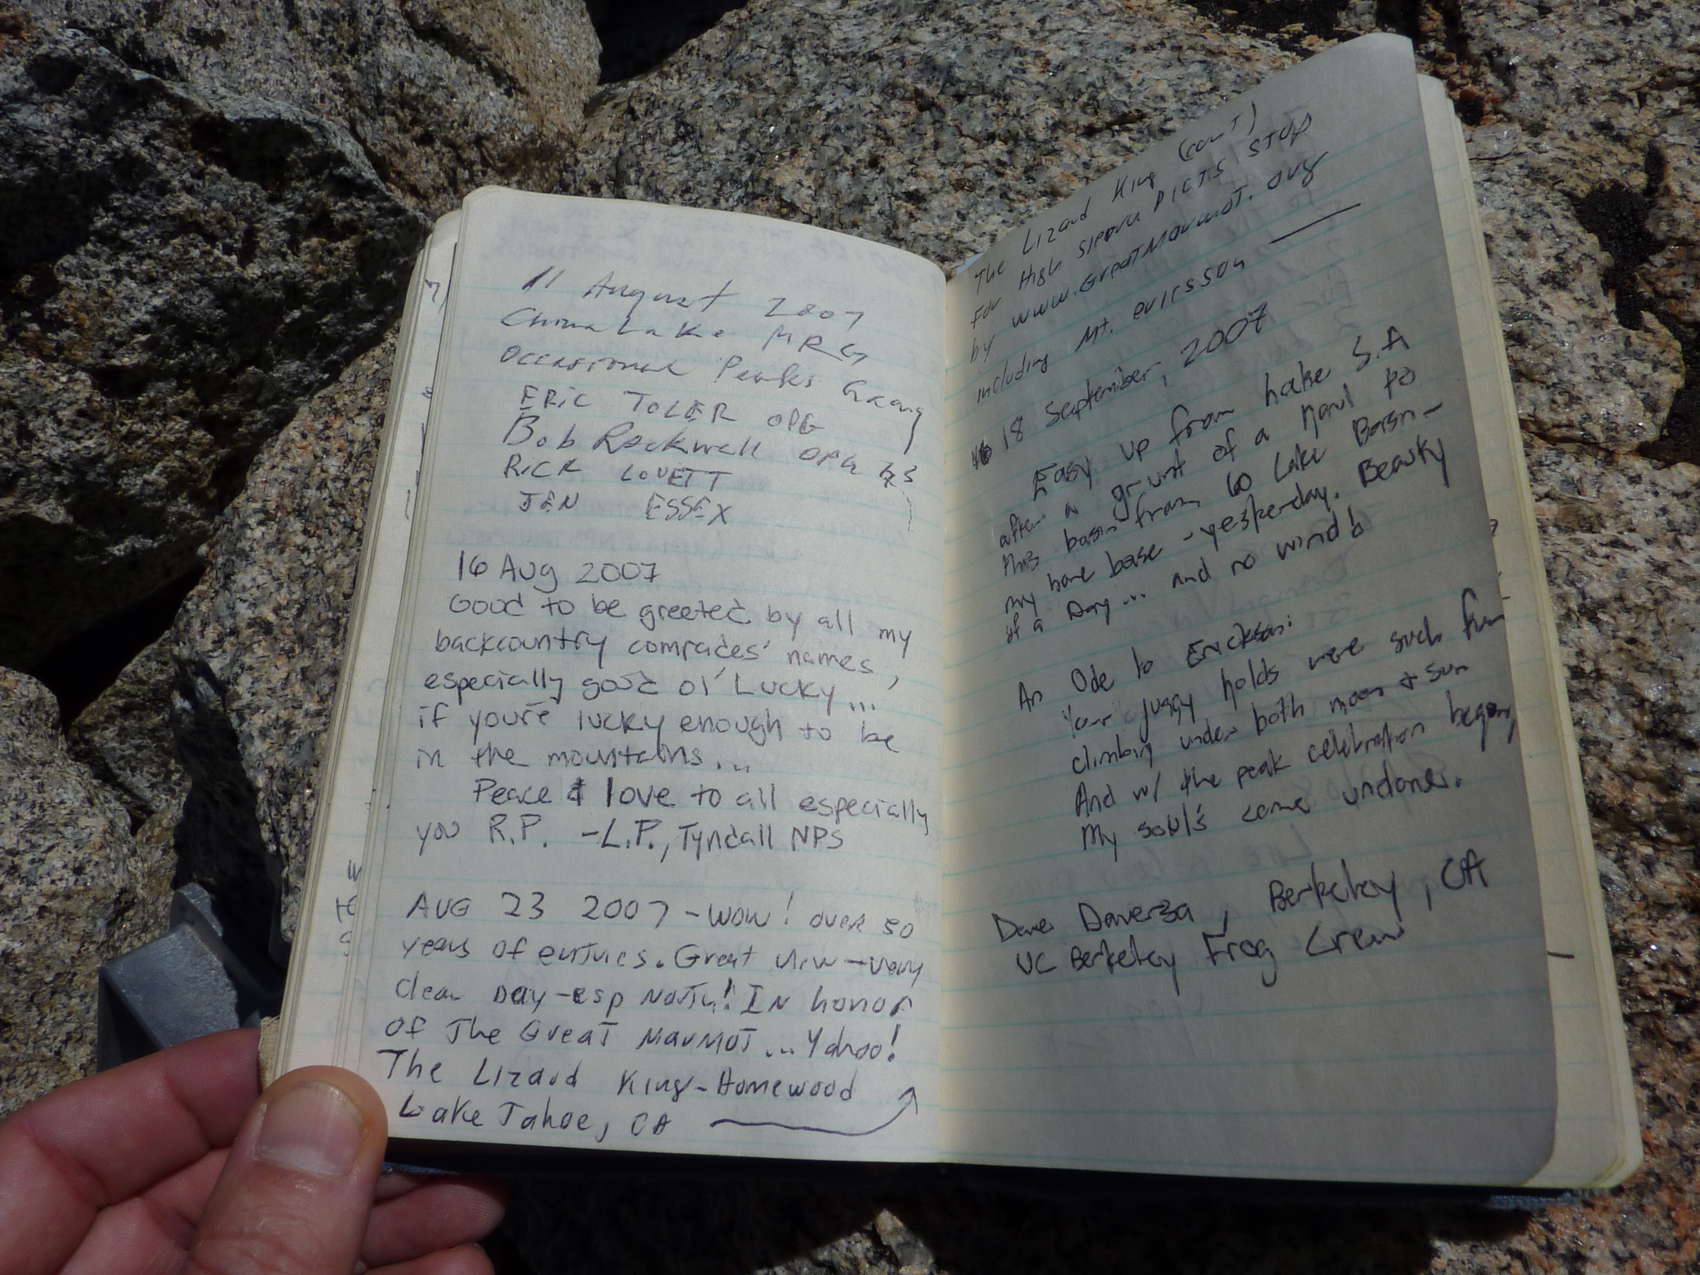 11 August 2007
China Lake MRG
Occasional Peaks Gang
ERIC TOLER OPG
Bob Rockwell OPG
RICK LOVETT
JEN ESSEX
16 Aug 2007
Good to be greeted by all my
backcountry comrades' names,
especially good ol' Lucky...
if you're lucky enough to be
in the mountains...
Peace & love to all especially
you R.P. -L.P., Tyndall NPS
AUG 23 2007 - WOW! over 50
years of entries. Great view - very
clear Day - esp North! IN honor
of The Great Marmot... Yahoo!
The Lizard King - Homewood
Lake Tahoe, CA
The Lizard King (con't)
For High Sierra PICTS STOP
by www.GreatMarmot.org
including Mt. ericsson
18 September, 2007
Easy up from Lake S.A
after a grunt of a haul to
this basin from 60 Lake Basin -
my home base - yesterday. Beauty
of a Day... and no wind
An Ode to Erickson:
Your juggy holds were such fun
climbing under both moon & sun
And w/ the peak celebration begun,
My soul's come undone.
Dave Daversa, Berkeley, CA
UC Berkeley Frog Crew